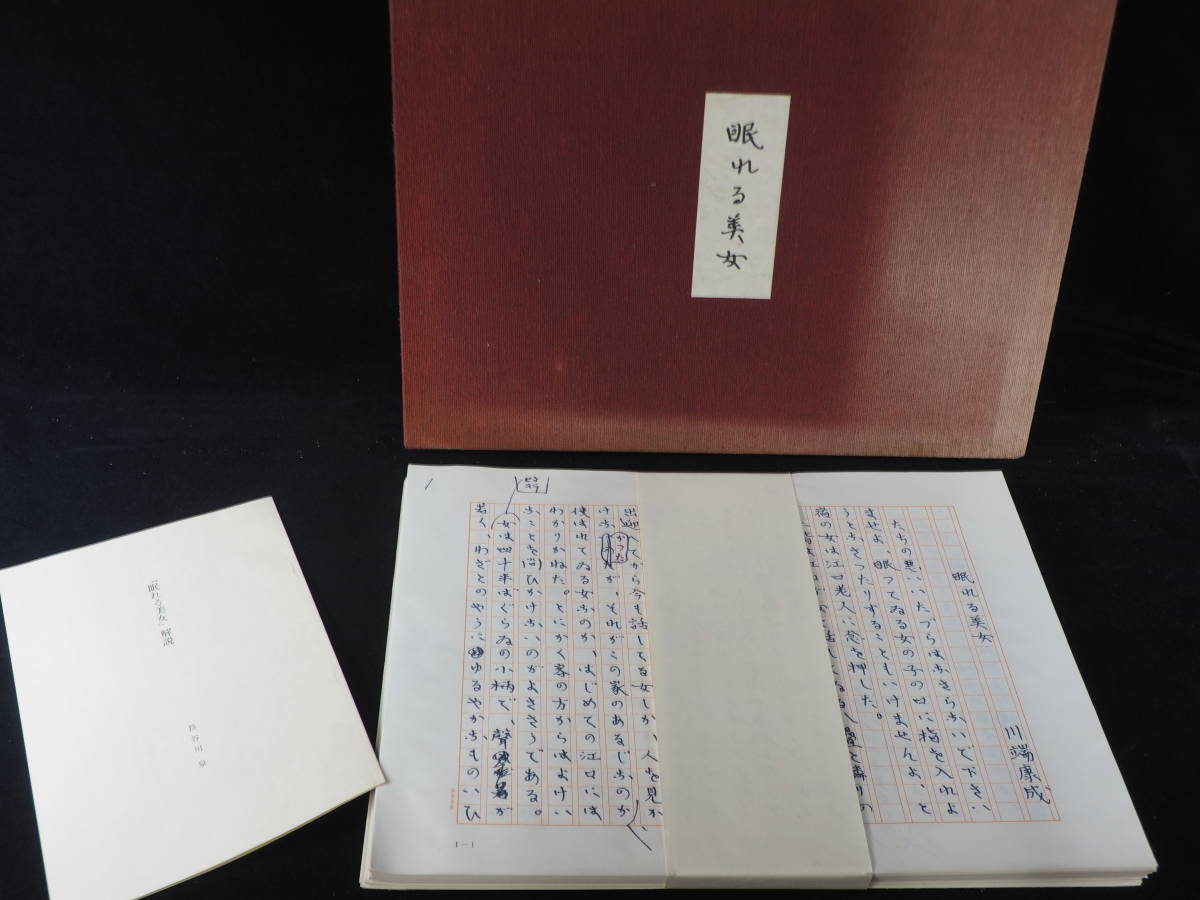 眠れる美女
眠れる美女
川端康成
たちの悪いいたづらはなさらないで下さい
ませよ、眠つてゐる女の子の口に指を入れよ
うとなさつたりすることもいけませんよ、と
宿の女は江口老人に念を押した。
出迎へてから今も話してる女しか、人を見か
けなかつたが、それがこの家のあるじなのか
使はれてゐる女なのか、はじめての江口には
わかりかねた。とにかく客の方からはよけい
なことを問ひかけないのがよささうである。
女は四十半ばぐらゐの小柄で、聲が
若く、わざとのやうにゆるやかなものいひ
1
改行
1-1
『眠れる美女』解説
長谷川泉